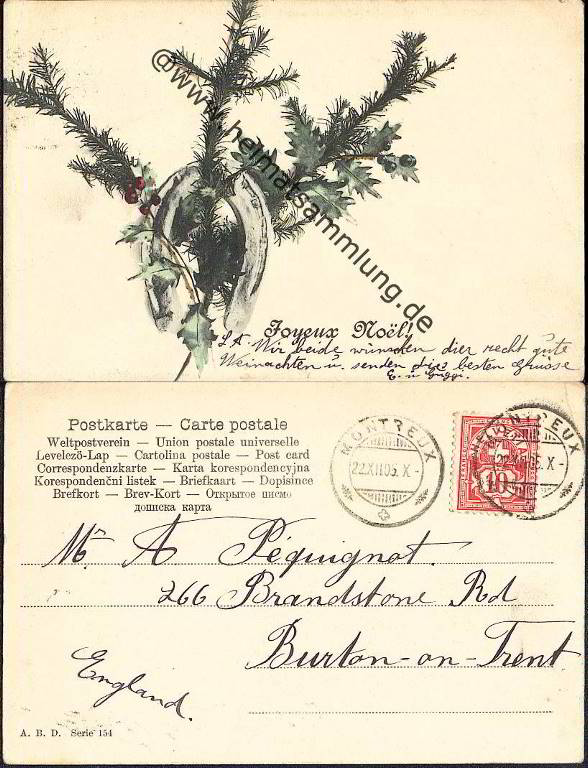 @www.heimatsammlung.de
Joyeux Noël!
L.A. Wir beide wünschen dier recht gute
Weinachten u. senden dir besten Grüsse
E. u
Postkarte — Carte postale
Weltpostverein — Union postale universelle
Levelezö-Lap — Cartolina postale — Post card
Correspondenzkarte — Karta korespondencyjna
Korespondenční listek — Briefkaart — Dopisince
Brefkort — Brev-Kort — Открытое писмо
дописка карта
MONTREUX
22.XII.05. X -
MONTREUX
22.XII.05. X -
10
Mr A Péquignot.
266 Brandstone Rd
Burton-on-Trent
England.
A. B. D. Serie 154